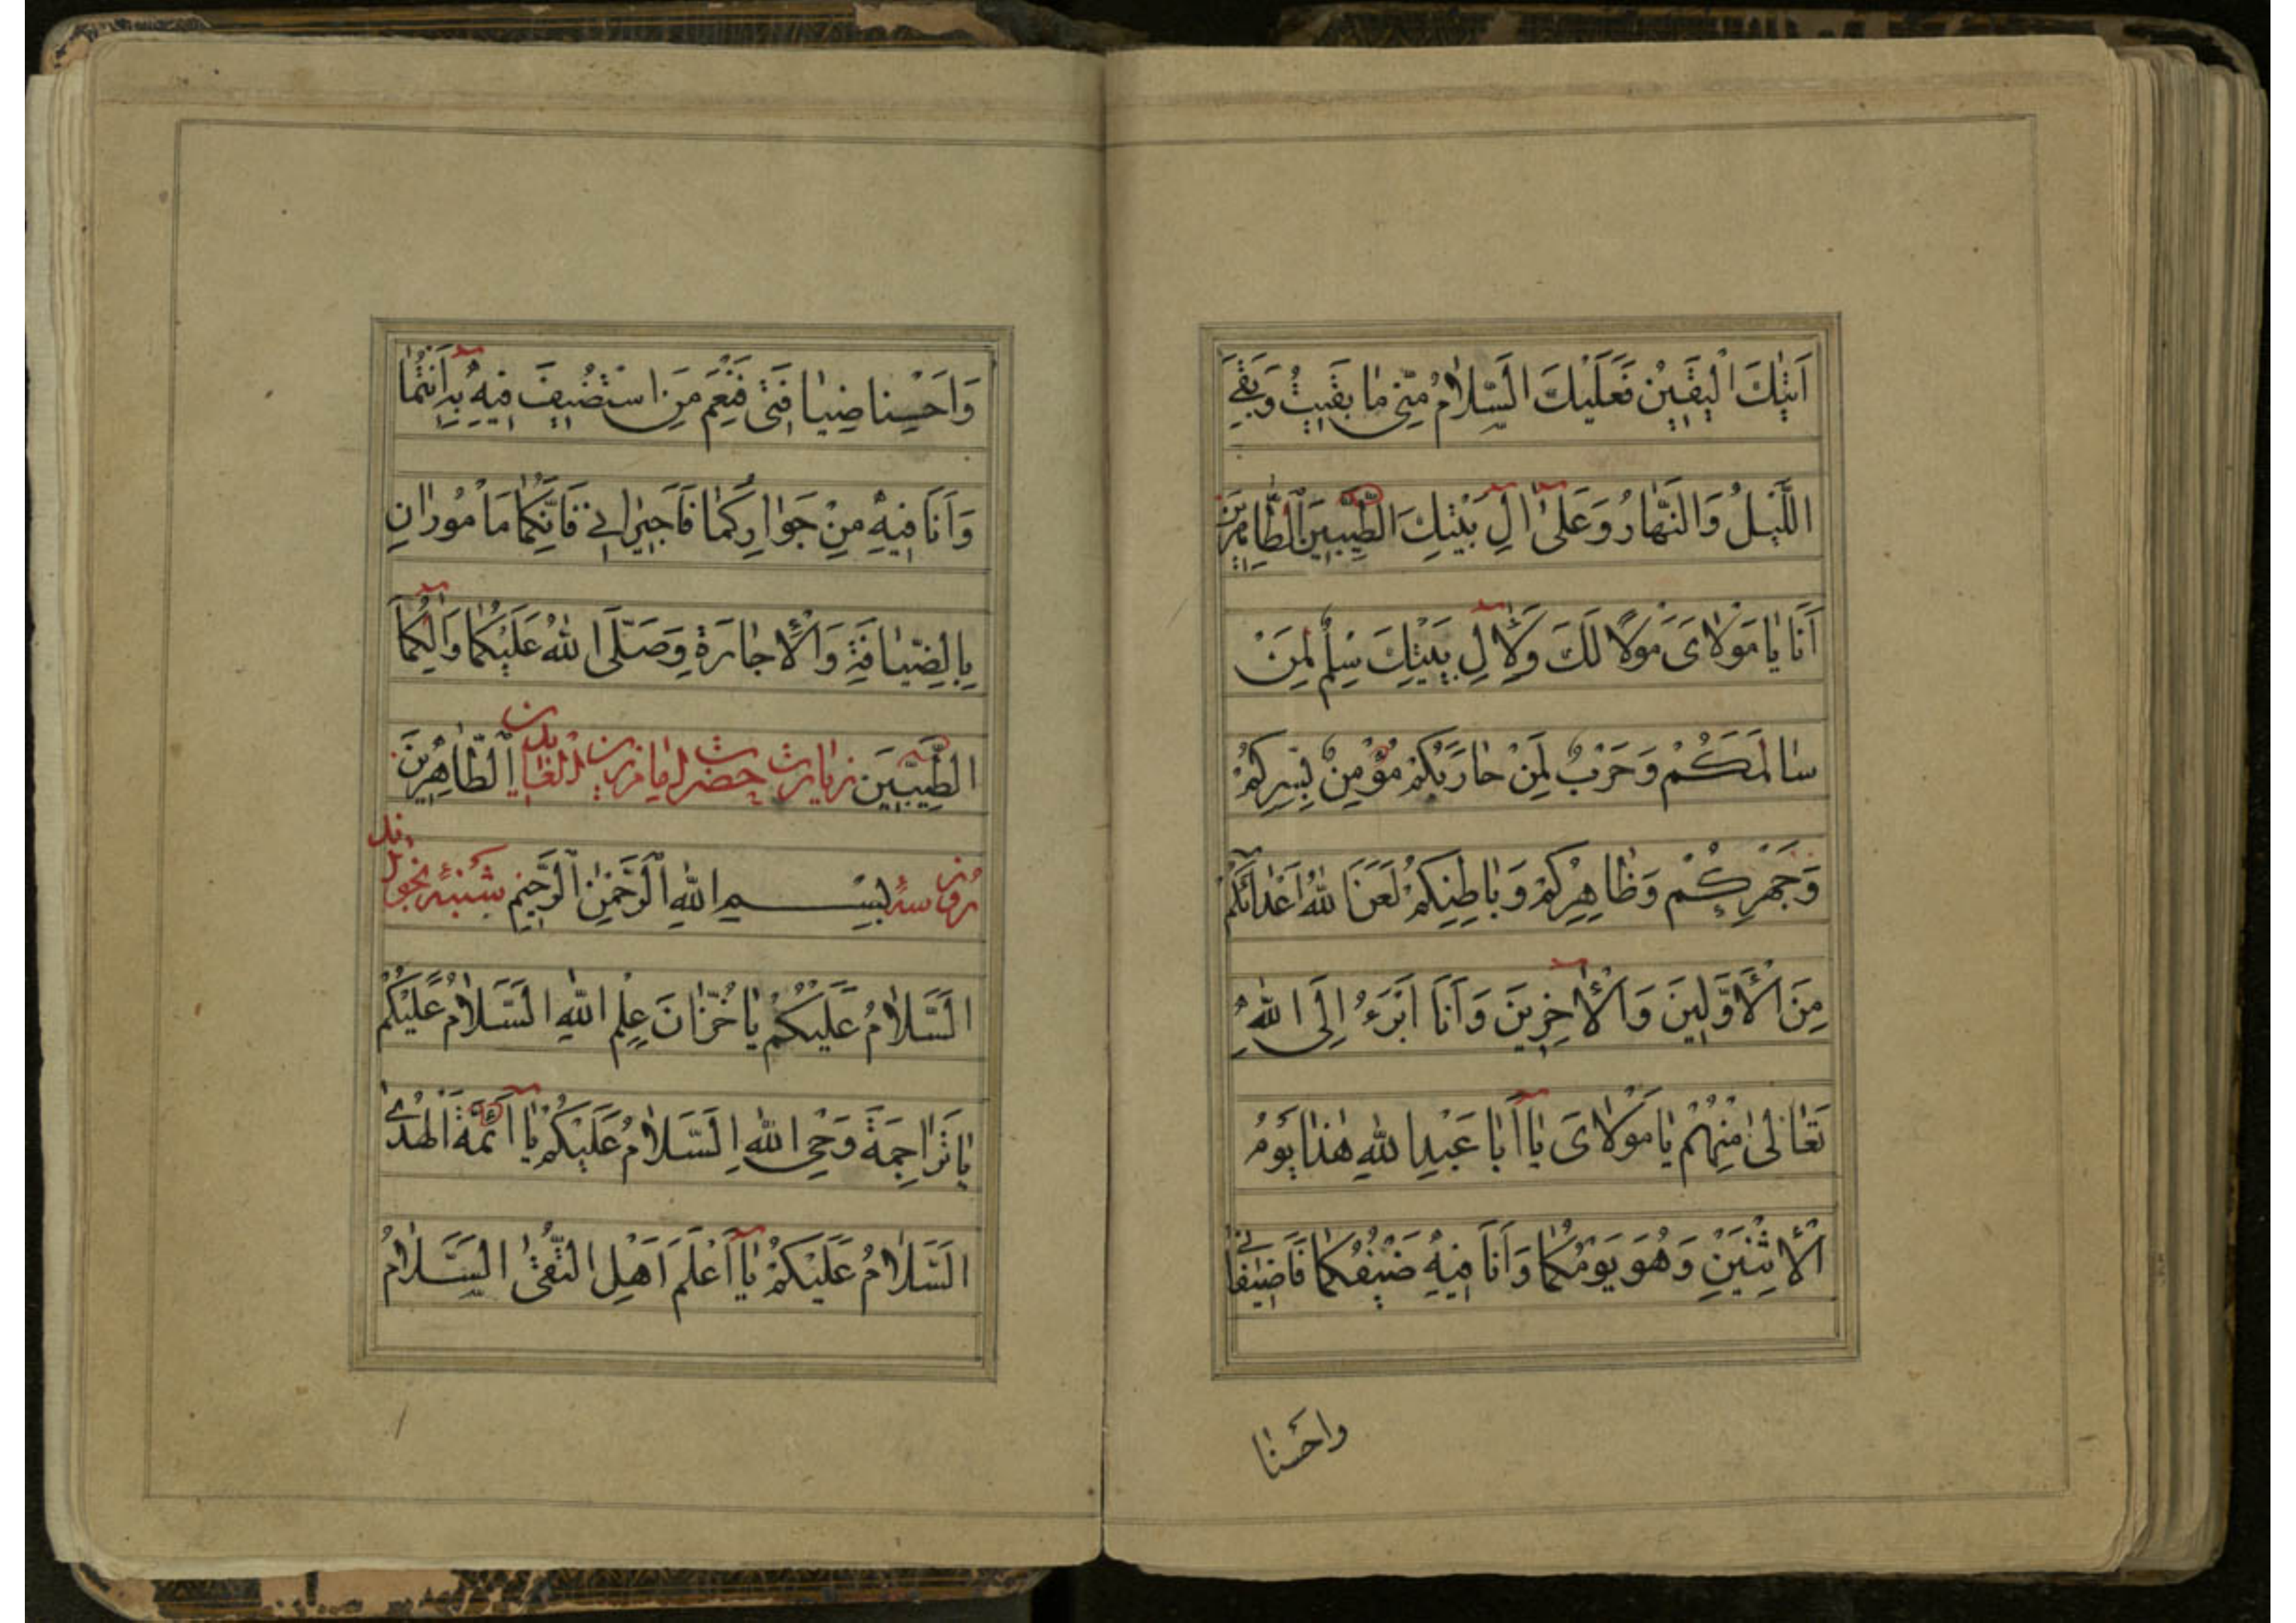 اَتٰيكَ الْيَقٖينُ فَعَلَيْكَ السَّلٰامُ مِنّٖى مٰا بَقٖيتُ وَبَقِىَ
اللَّيْلُ وَالنَّهٰارُ وَعَلىٰٓ اٰلِ بَيْتِكَ الطَّيِّبٖينَ الطّٰاهِرٖينَ
اَنَا يٰا مَوْلٰاىَ مَوْلًا لَكَ وَلِاٰلِ بَيْتِكَ سِلْمٌ لِمَنْ
سٰالَمَكُمْ وَحَرْبٌ لِمَنْ حٰارَبَكُمْ مُؤْمِنٌ بِسِرِّكُمْ
وَجَهْرِكُمْ وَظٰاهِرِكُمْ وَبٰاطِنِكُمْ لَعَنَ اللّٰهُ اَعْدٰائَكُمْ
مِنَ الْاَوَّلٖينَ وَالْاٰخِرٖينَ وَاَنَا اَبْرَءُ اِلَى اللّٰهِ
تَعٰالىٰ مِنْهُمْ يٰا مَوْلٰاىَ يٰٓا اَبٰا عَبْدِ اللّٰهِ هٰذٰا يَوْمُ
الْاِثْنَيْنِ وَهُوَ يَوْمُكُمٰا وَاَنَا فٖيهِ ضَيْفُكُمٰا فَاَضٖيفٰانٖى
واحَسْنٰا
وَاَحْسِنٰا ضِيٰافَتٖى فَنِعْمَ مَنِ اسْتُضٖيفَ فٖيهِ بِهٖٓ اَنْتُمٰا
وَاَنَا فٖيهِ مِنْ جَوٰارِكُمٰا فَاَجٖيرٰانٖى فَاِنَّكُمٰا مَأْمُورٰانِ
بِالضِّيٰافَةِ وَالْاِجٰارَةِ وَصَلَّى اللّٰهُ عَلَيْكُمٰا وَاٰلِكُمَا
الطَّيِّبٖينَ زيارت حضرت امام زين العابدين الطّٰاهِرٖينَ
روز سه بِسْمِ اللّٰهِ الرَّحْمٰنِ الرَّحٖيمِ شنبه
اَلسَّلٰامُ عَلَيْكُمْ يٰا خُزّٰانَ عِلْمِ اللّٰهِ اَلسَّلٰامُ عَلَيْكُمْ
يٰا تَرٰاجِمَةَ وَحْىِ اللّٰهِ اَلسَّلٰامُ عَلَيْكُمْ يٰٓا اَئِمَّةَ الْهُدىٰ
اَلسَّلٰامُ عَلَيْكُمْ يٰٓا اَعْلَمَ اَهْلِ التُّقىٰ اَلسَّلٰامُ